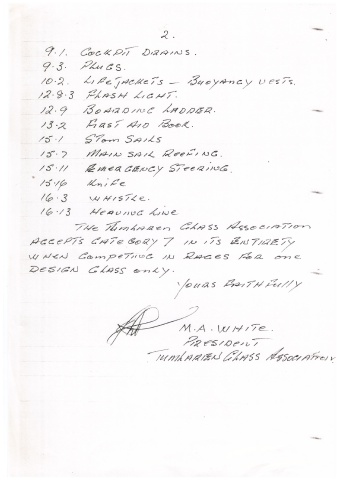 2.
9.1. COCKPIT DRAINS.
9.3. PLUGS.
10.2. LIFEJACKETS – BUOYANCY VESTS.
12.8.3 FLASH LIGHT.
12.9 BOARDING LADDER.
13.2 FIRST AID BOOK.
15.1 STORM SAILS
15.7 MAIN SAIL REEFING.
15.11 EMERGENCY STEERING.
15.16 KNIFE
16.3 WHISTLE.
16.13 HEAVING LINE
THE TUMLAREN CLASS ASSOCIATION
ACCEPTS CATEGORY 7 IN ITS ENTIRETY
WHEN COMPETING IN RACES FOR ONE
DESIGN CLASS ONLY.
YOURS FAITHFULLY
M.A. WHITE.
PRESIDENT
TUMLAREN CLASS ASSOCIATION